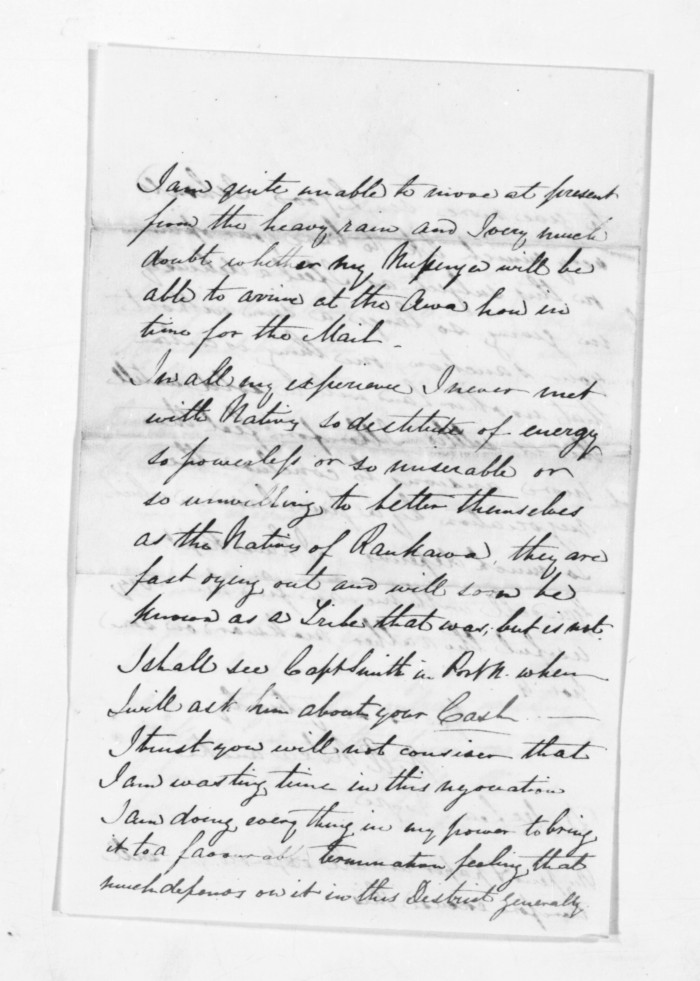 I am quite unable to move at present
from the heavy rain and I very much
doubt whether my Messenger will be
able to arrive at the Awa hou in
time for the Mail.
In all my experience I never met
with Natives so destitute of energy
so powerless or so miserable or
so unwilling to better themselves
as the Natives of Raukawa, they are
fast dying out and will soon be
known as a Tribe that was, but is not.
I shall see Capt Smith in Port N. when
I will ask him about your Cash —
I trust you will not consider that
I am wasting time in this negociation
I am doing every thing in my power to bring
it to a favourable termination feeling that
much depends on it in this District generally